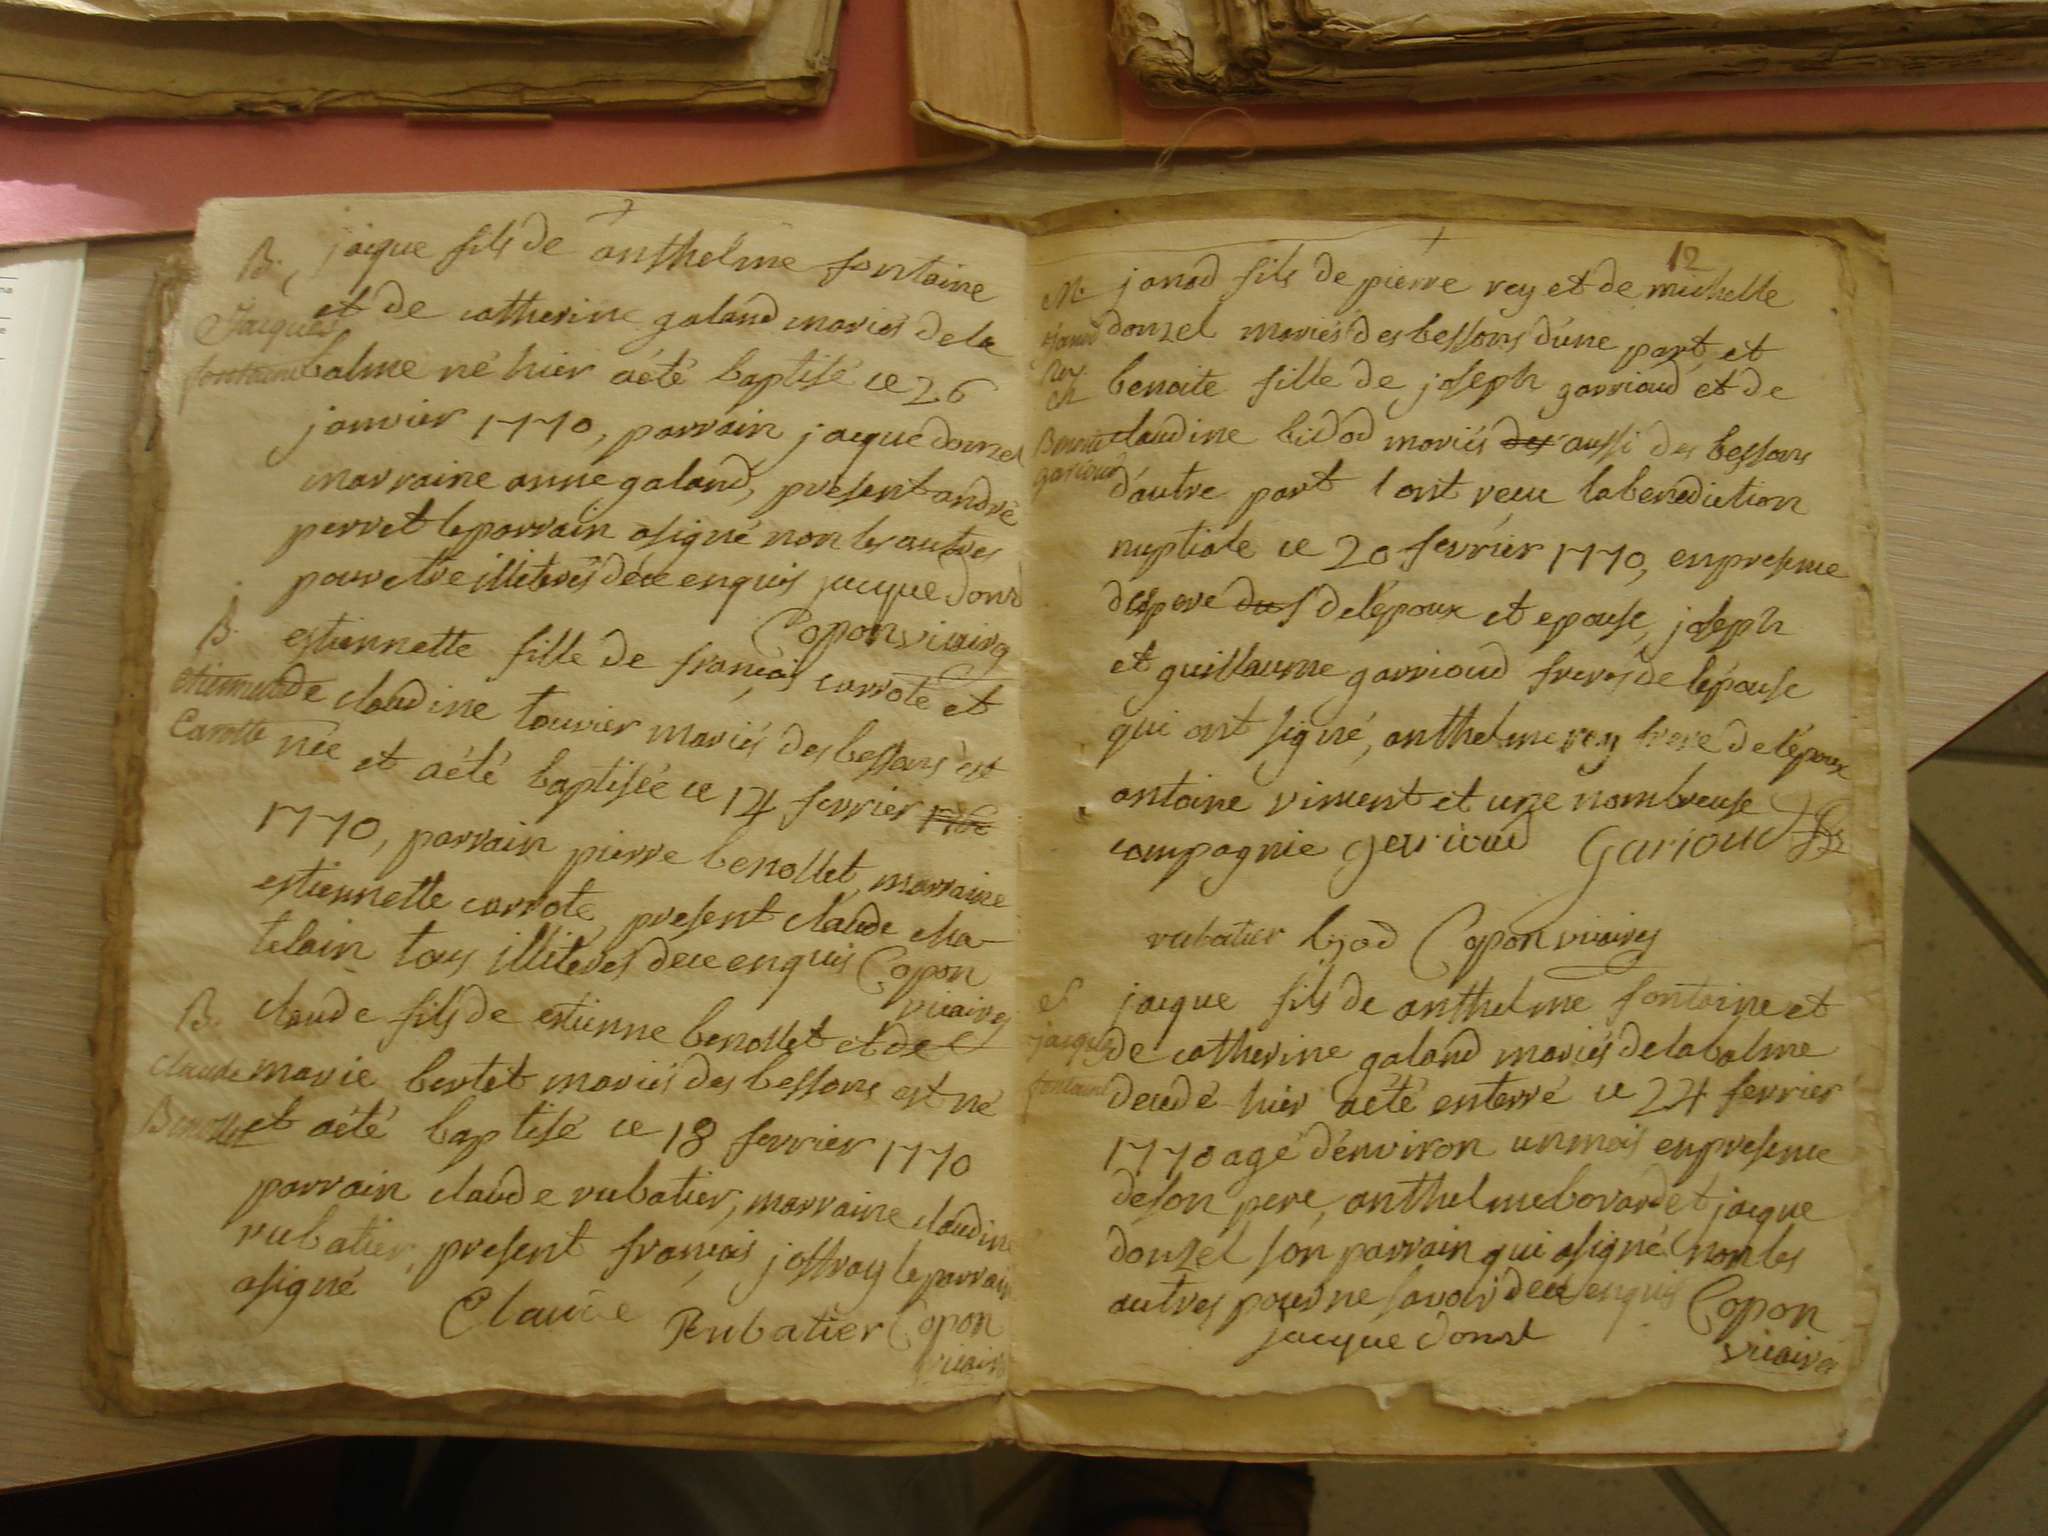 B. jacque fils de anthelme fontaine
Jacques et de catherine galand mariés de la
fontaine balme né hier aété baptisé ce 26
janvier 1770, parrain jacque donzel
marraine anne galand, present andré
perret le parrain asigné non les autres
pour etre illiterés dece enquis jacque donzel
Copon vicaire
B. estiennette fille de françois carrote et
etiennette de claudine touvier mariés des bessons est
Carotte née et aété baptisée ce 14 fevrier
1770, parrain pierre benollet, marraine
estiennette carrote, present claude cha-
telain tous illiterés dece enquis Copon
vicaire
B. claude fils de estienne benollet et de
claude marie bertet mariés des bessons est né
Benollet et aété baptisé ce 18 fevrier 1770
parrain claude rubatier, marraine claudine
rubatier, present françois joffray le parrain
asigné Claude Rubatier Copon
vicaire
12
M. janod fils de pierre rey et de michelle
donzel mariés des bessons d'une part, et
Rey
et benoite fille de joseph garrioud et de
Benoite claudine bidod mariés des aussi des bessons
garioud d'autre part ont receu la benediction
nuptiale ce 20 fevrier 1770, en presence
des pere de l'époux et epouse, joseph
et guillaume garrioud freres de l'épouse
qui ont signé, anthelme rey frere de l'époux
antoine viment et une nombreuse
compagnie garrioud Garioud
rubatier Copon vicaire
S. jacque fils de anthelme fontaine et
jacque de catherine galand mariés de la balme
fontaine decedé hier aété enterré ce 24 fevrier
1770 agé d'environ un mois en presence
de son pere, anthelme bovardet jacque
donzel son parrain qui asigné non les
autres pour ne savoir dece enquis Copon
jacque donzel vicaire